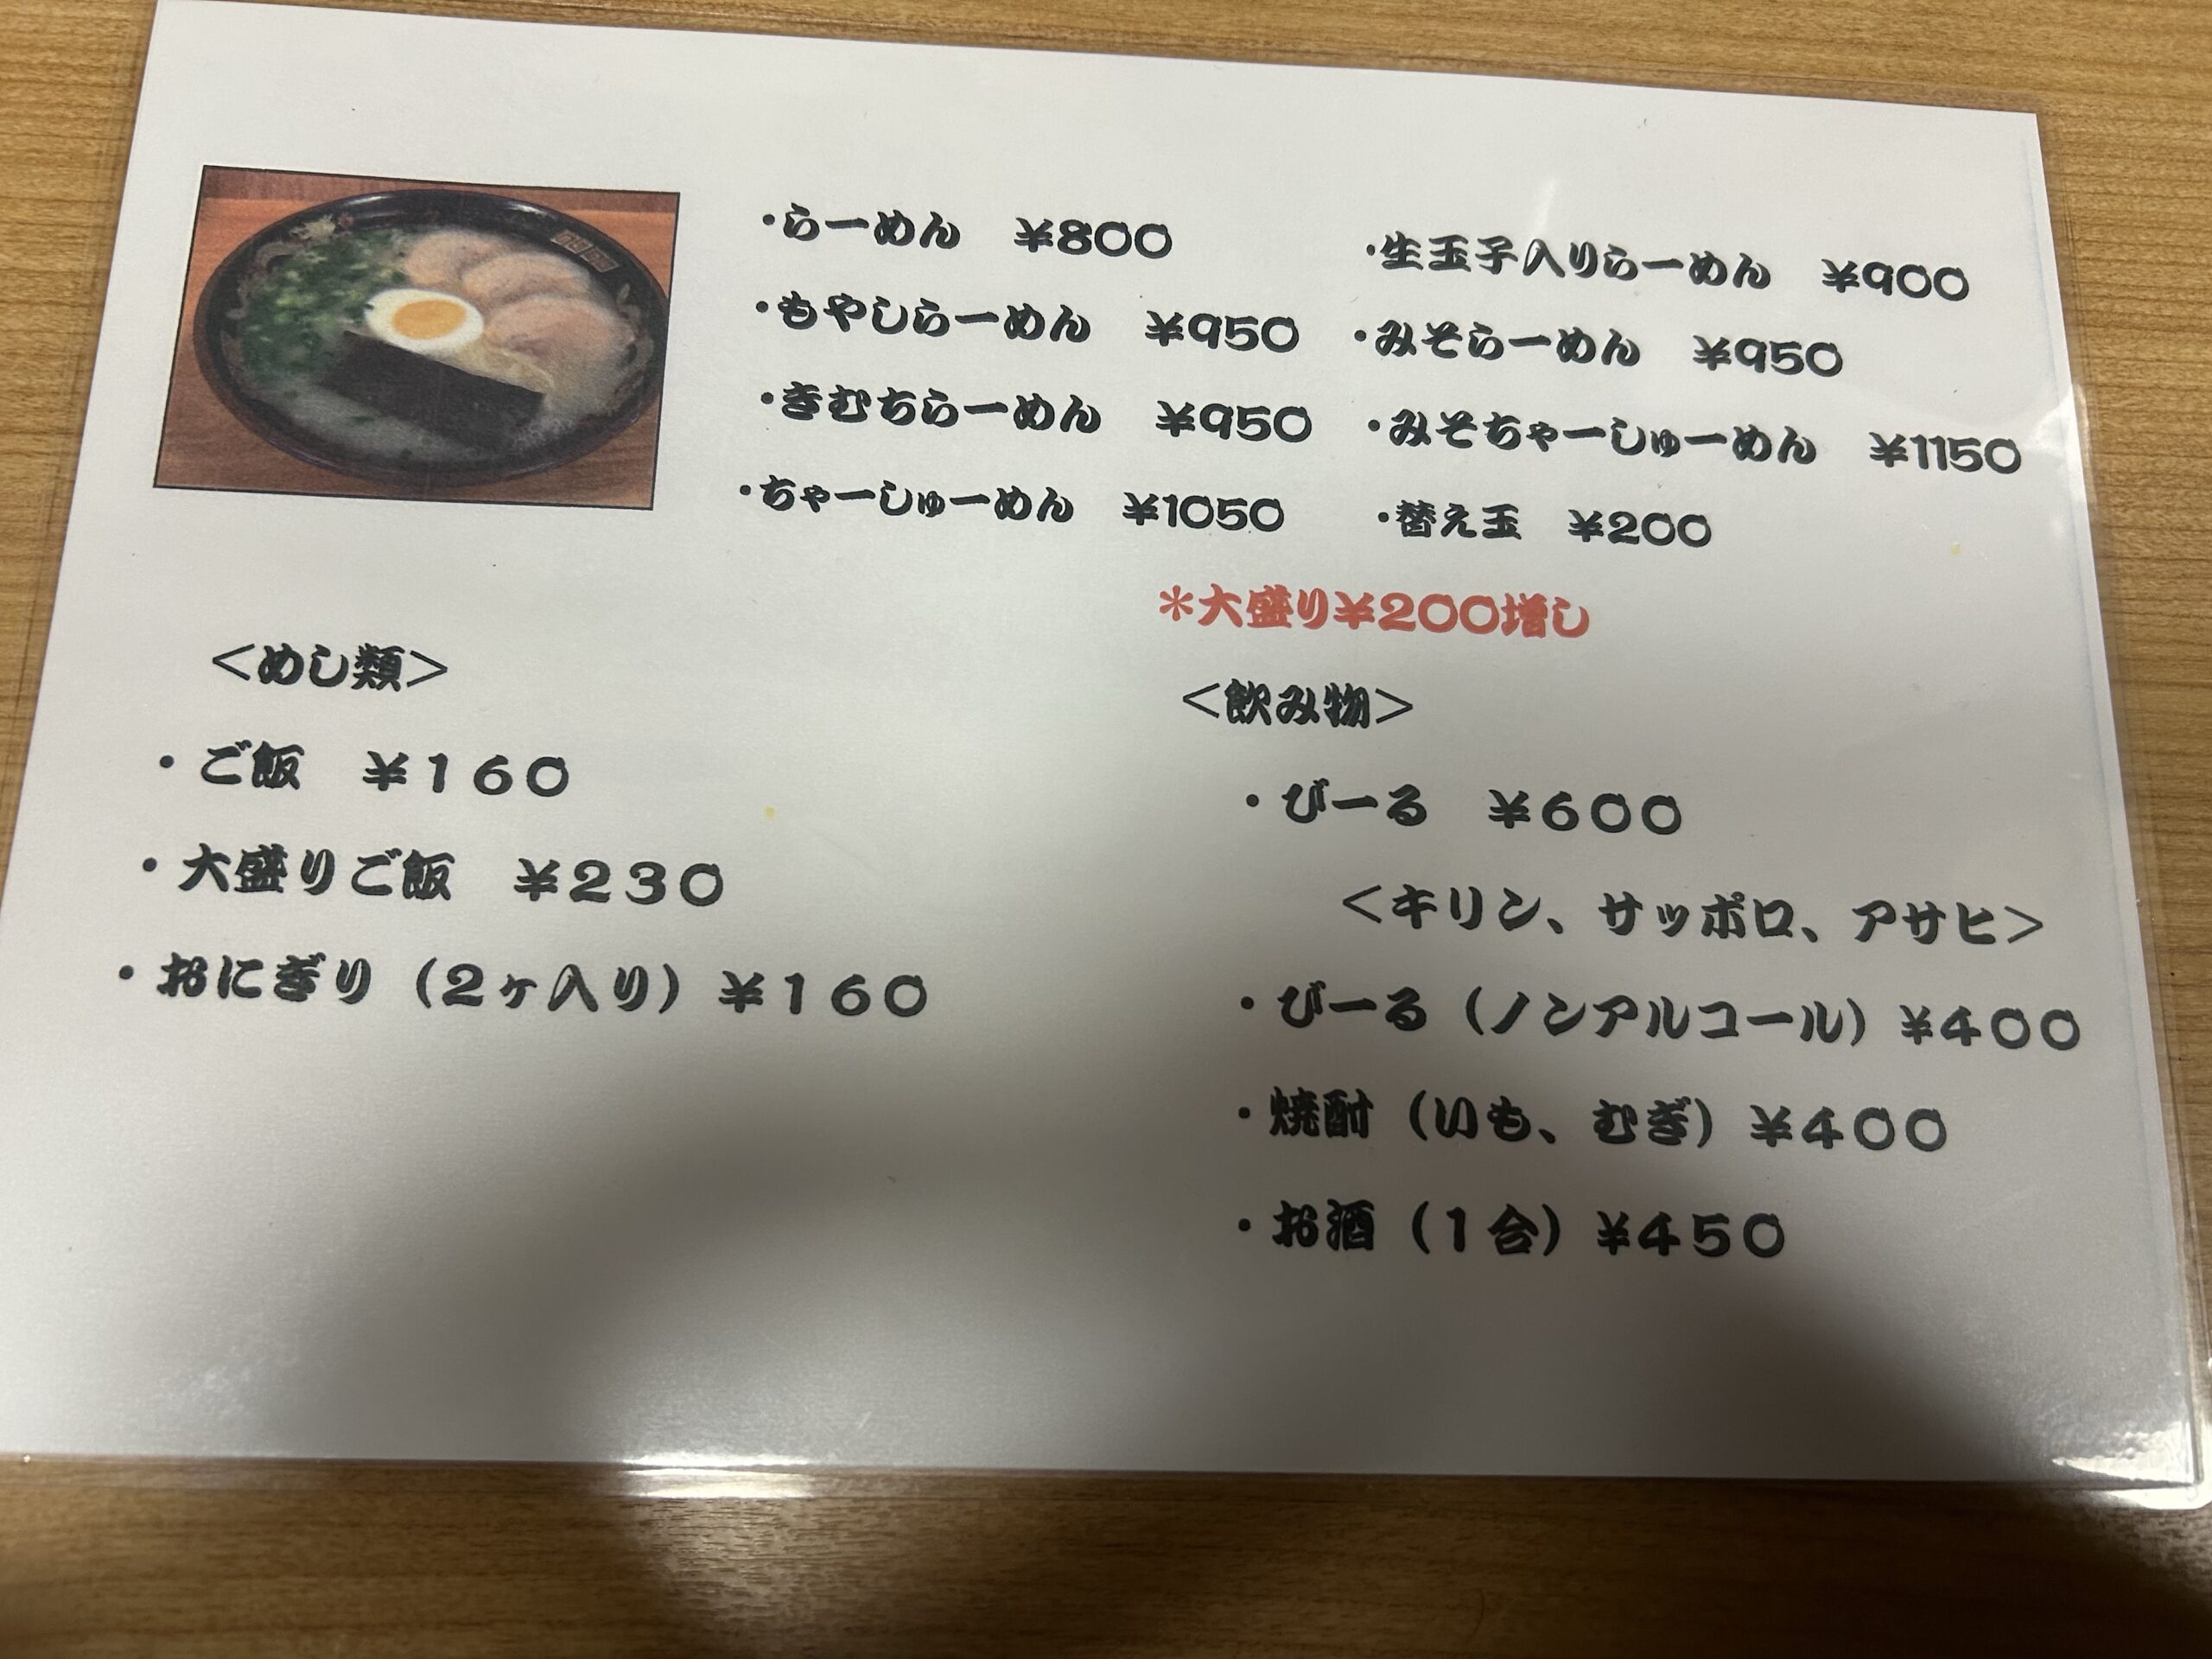 ・らーめん　¥800
・もやしらーめん　¥950
・きむちらーめん　¥950
・ちゃーしゅーめん　¥1050
・生玉子入りらーめん　¥900
・みそらーめん　¥950
・みそちゃーしゅーめん　¥1150
・替え玉　¥200
＊大盛り¥200増し
＜めし類＞
・ご飯　¥１６０
・大盛りご飯　¥２３０
・おにぎり（２ヶ入り）¥１６０
＜飲み物＞
・びーる　¥６００
＜キリン、サッポロ、アサヒ＞
・びーる（ノンアルコール）¥４００
・焼酎（いも、むぎ）¥４００
・お酒（１合）¥４５０